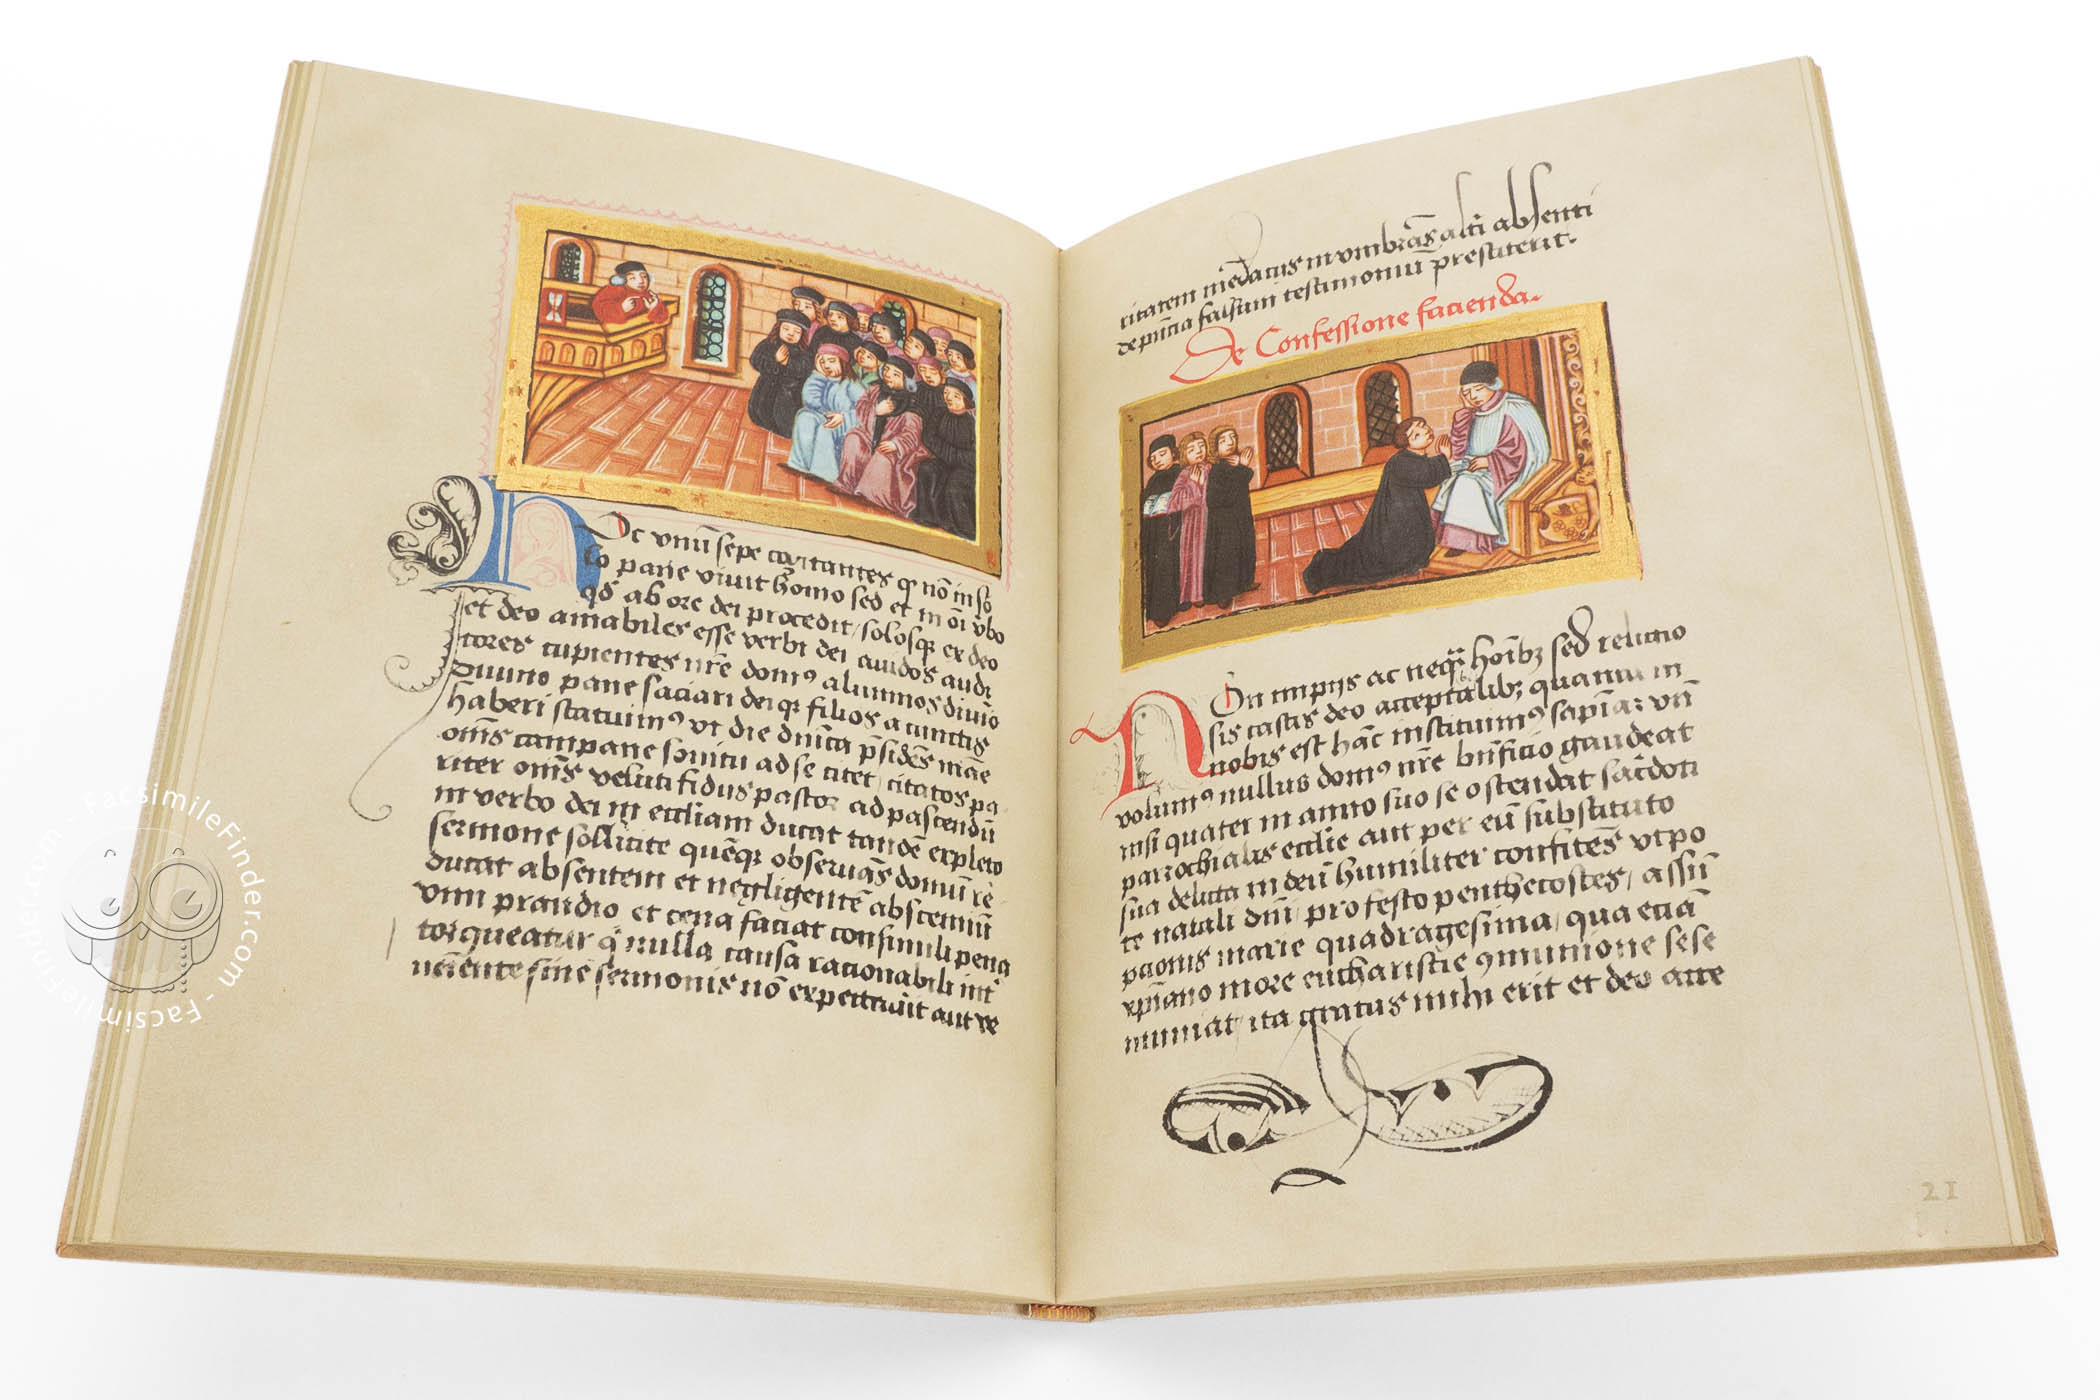 Oc vnū sepe cogitantes qͥ nō in so
lo pane viuit homo sed et in oī v̄bo
qd̄ ab ore dei procedit / solosqꝫ ex deo
et deo amabiles esse verbi dei auidos audi
tores cupientes nr̄e domꝰ alumnos diuīo
diuino pane saciari dei qꝫ filios a cunctis
haberi statuimꝰ vt die dn̄ica
om̄s campane sonitu ad se citet / citatos pa
riter om̄s veluti fidus pastor ad pascendū
in verbo dei in eccliam ducat tandē expleto
sermone sollicite quēqꝫ obseruās domū re
ducat absentem et negligentē abscenciū
vini prandio et cena faciat consimili pena
torqueatur qͥ nulla causa racionabili int̄
ueniente fine sermonis nō expectauit aut ve
ritatem mēdacijs in vmbrās alt̄i absenti
falsum testimoniū prestiterit.
De Confessione facienda.
On impijs ac neqꝫ hoīb; sed reluctio
sis castis deo acceptalib; quam in
nobis est hāc institutimꝰ sapīaꝫ vn̄
volumꝰ nullus domꝰ nr̄e bn̄ficio gaudeat
nisi quater in anno suo se ostendat sac̄doti
parrochialis ecclīe aut per eū substituto
sua delicta in deū humiliter confitēs vtpo
te natali dn̄i / profesto penthecostes / assūt
pcionis marie quadragesima / qua eciā
xp̄iano more eucharistie ꝯmunione sese
muniat / ita gratus mihi erit et deo acce
21
FacsimileFinder.com - FacsimileFinder.com